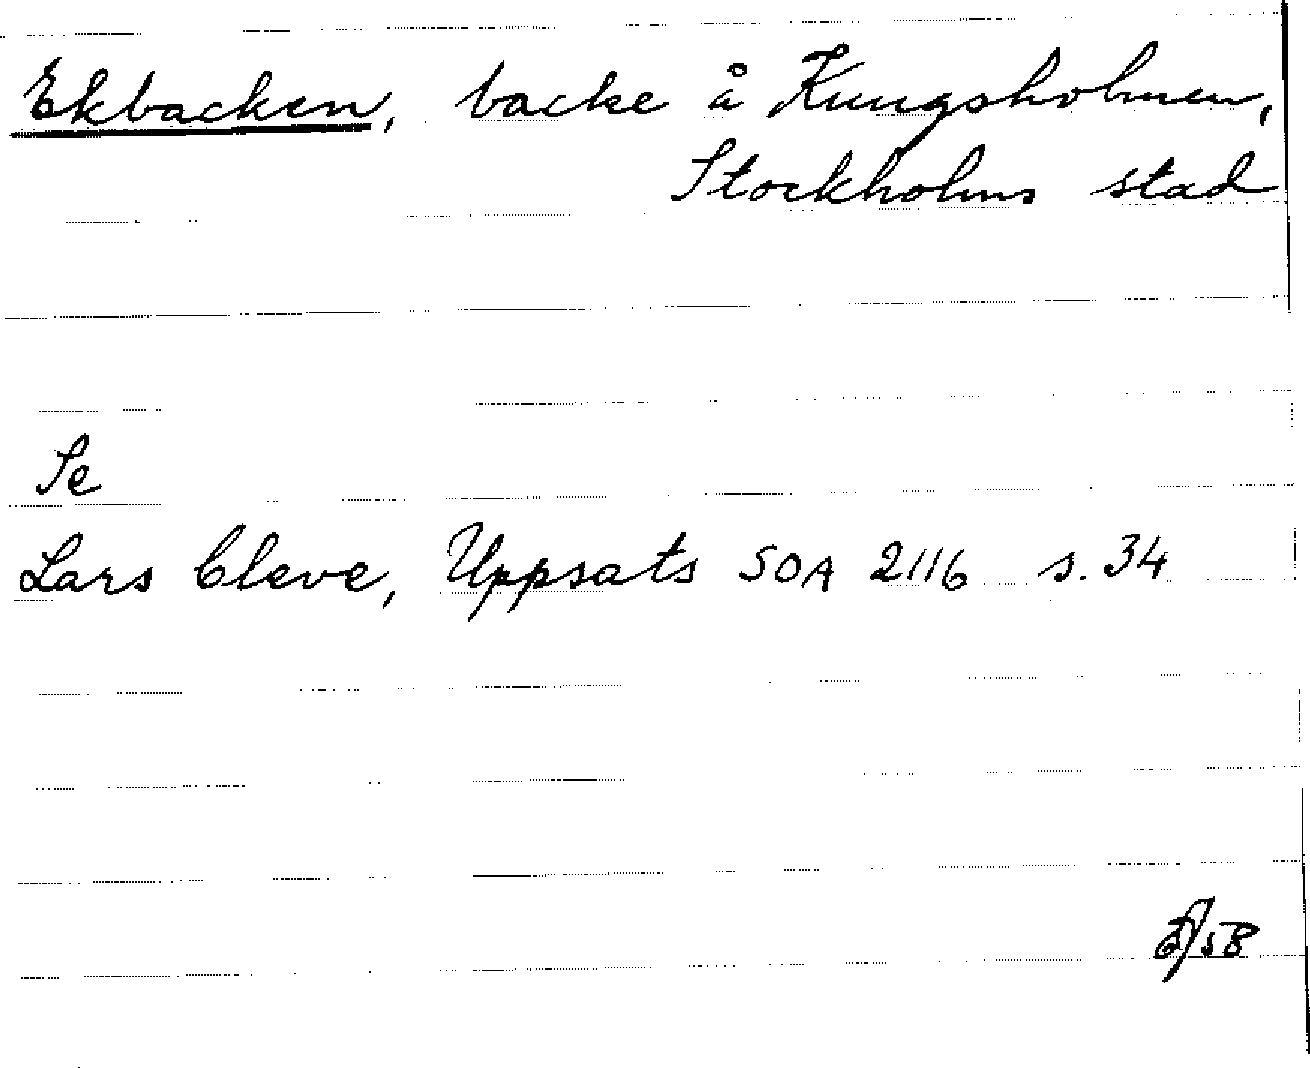 Ekbacken, backe å Kungsholmen,
Stockholms stad
Se
Lars Cleve, Uppsats SOA 2116 s. 34
/58